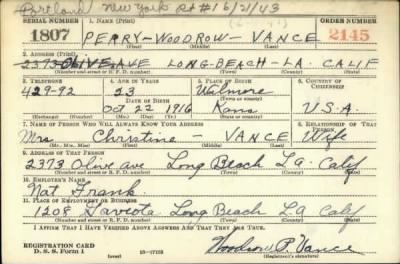 Portland New York
SERIAL NUMBER 1. NAME (Print) ORDER NUMBER
1807 PERRY-WOODROW-VANCE 2145
(First) (Middle) (Last)
2. ADDRESS (Print)
2373 OLIVE AVE LONG-BEACH-LA. CALIF
(Number and street or R. F. D. number) (Town) (County) (State)
3. TELEPHONE 4. AGE IN YEARS 5. PLACE OF BIRTH 6. COUNTRY OF CITIZENSHIP
429-92 23 Wilmore
DATE OF BIRTH (Town or county)
Oct 22 1916 Kans U.S.A.
(Exchange) (Number) (Mo.) (Day) (Yr.) (State or country)
7. NAME OF PERSON WHO WILL ALWAYS KNOW YOUR ADDRESS 8. RELATIONSHIP OF THAT PERSON
Mrs Christine - VANCE Wife
(Mr., Mrs., Miss) (First) (Middle) (Last)
9. ADDRESS OF THAT PERSON
2373 Olive ave Long Beach LA. Calif
(Number and street or R. F. D. number) (Town) (County) (State)
10. EMPLOYER'S NAME
Nat Frank
11. PLACE OF EMPLOYMENT OR BUSINESS
1208 Gaviota Long Beach LA Calif
(Number and street or R. F. D. number) (Town) (County) (State)
I AFFIRM THAT I HAVE VERIFIED ABOVE ANSWERS AND THAT THEY ARE TRUE.
REGISTRATION CARD
D. S. S. Form 1 (over) Woodrow P. Vance
(Registrant's signature)